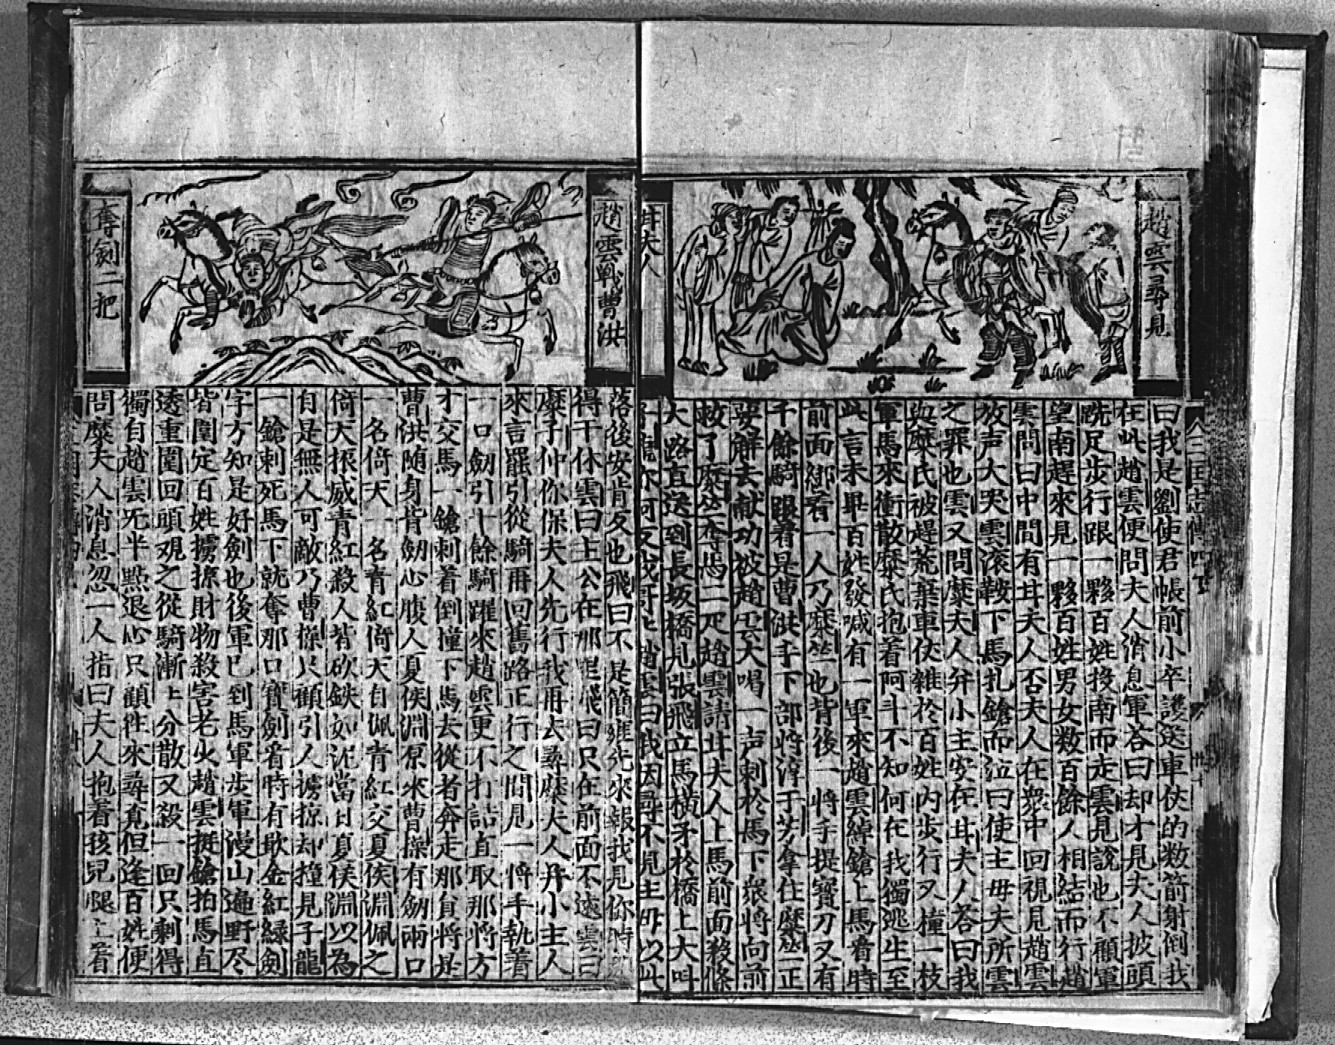 趙雲尋見
甘夫人
三国志傳四下
曰我是劉使君帳前小卒護送車仗的数箭射倒我
在此趙雲便問夫人消息軍荅曰却才見夫人披頭
跣足步行跟一夥百姓投南而走雲見說也不顧軍
望南趕來見一夥百姓男女数百餘人相結而行趙
雲問曰中間有甘夫人否夫人在衆中回視見趙雲
放声大哭雲滚鞍下馬扎鎗而泣曰使主母夫所雲
之罪也雲又問糜夫人并小主安在甘夫人荅曰我
與糜氏被趕荒棄車仗雜於百姓内步行又撞一枝
軍馬來衝散糜氏抱着阿斗不知何在我獨逃生至
此言未畢百姓發喊有一軍來趙雲綽鎗上馬看時
前面綁着一人乃糜竺也背後一将手提寳刀又有
千餘騎跟着是曹洪手下部将淳于芳拿住糜竺正
要解去献功被趙雲大喝一声刺於馬下衆将向前
救了糜竺奪馬二疋趙雲請甘夫人上馬前面殺條
大路直送到長坂橋見張飛立馬横矛於橋上大呌
子龍你何反我哥哥趙雲曰我因尋不見主母以此
趙雲戰曹洪
奪劍二把
落後安肯反也飛曰不是簡雍先來報我見你時
得干休雲曰主公在那里飛曰只在前面不遠雲曰
糜子仲你保夫人先行我再去尋糜夫人并小主人
來言罷引從騎再回舊路正行之間見一将手執着
一口劒引十餘騎躍來趙雲更不打話直取那将方
才交馬一鎗刺着倒撞下馬去從者奔走那員将是
曹洪随身背劒心腹人夏侯淵原來曹操有劒兩口
一名倚天一名青紅倚天自佩青紅交夏侯淵佩之
倚天振威青紅殺人皆砍鉄如泥當日夏侯淵以為
自是無人可敵乃曹操只顧引人擄掠却撞見子龍
一鎗刺死馬下就奪那口寳劍看時有欹金紅緑劍
字方知是好劍也後軍已到馬軍步軍漫山遍野尽
皆圍定百姓擄掠財物殺害老少趙雲挺鎗拍馬直
透重圍回頭观之從騎漸上分散又殺一回只剩得
獨自趙雲死半點退心只顧徃來尋覔但逢百姓便
問糜夫人消息忽一人指曰夫人抱着孩兒腿上着